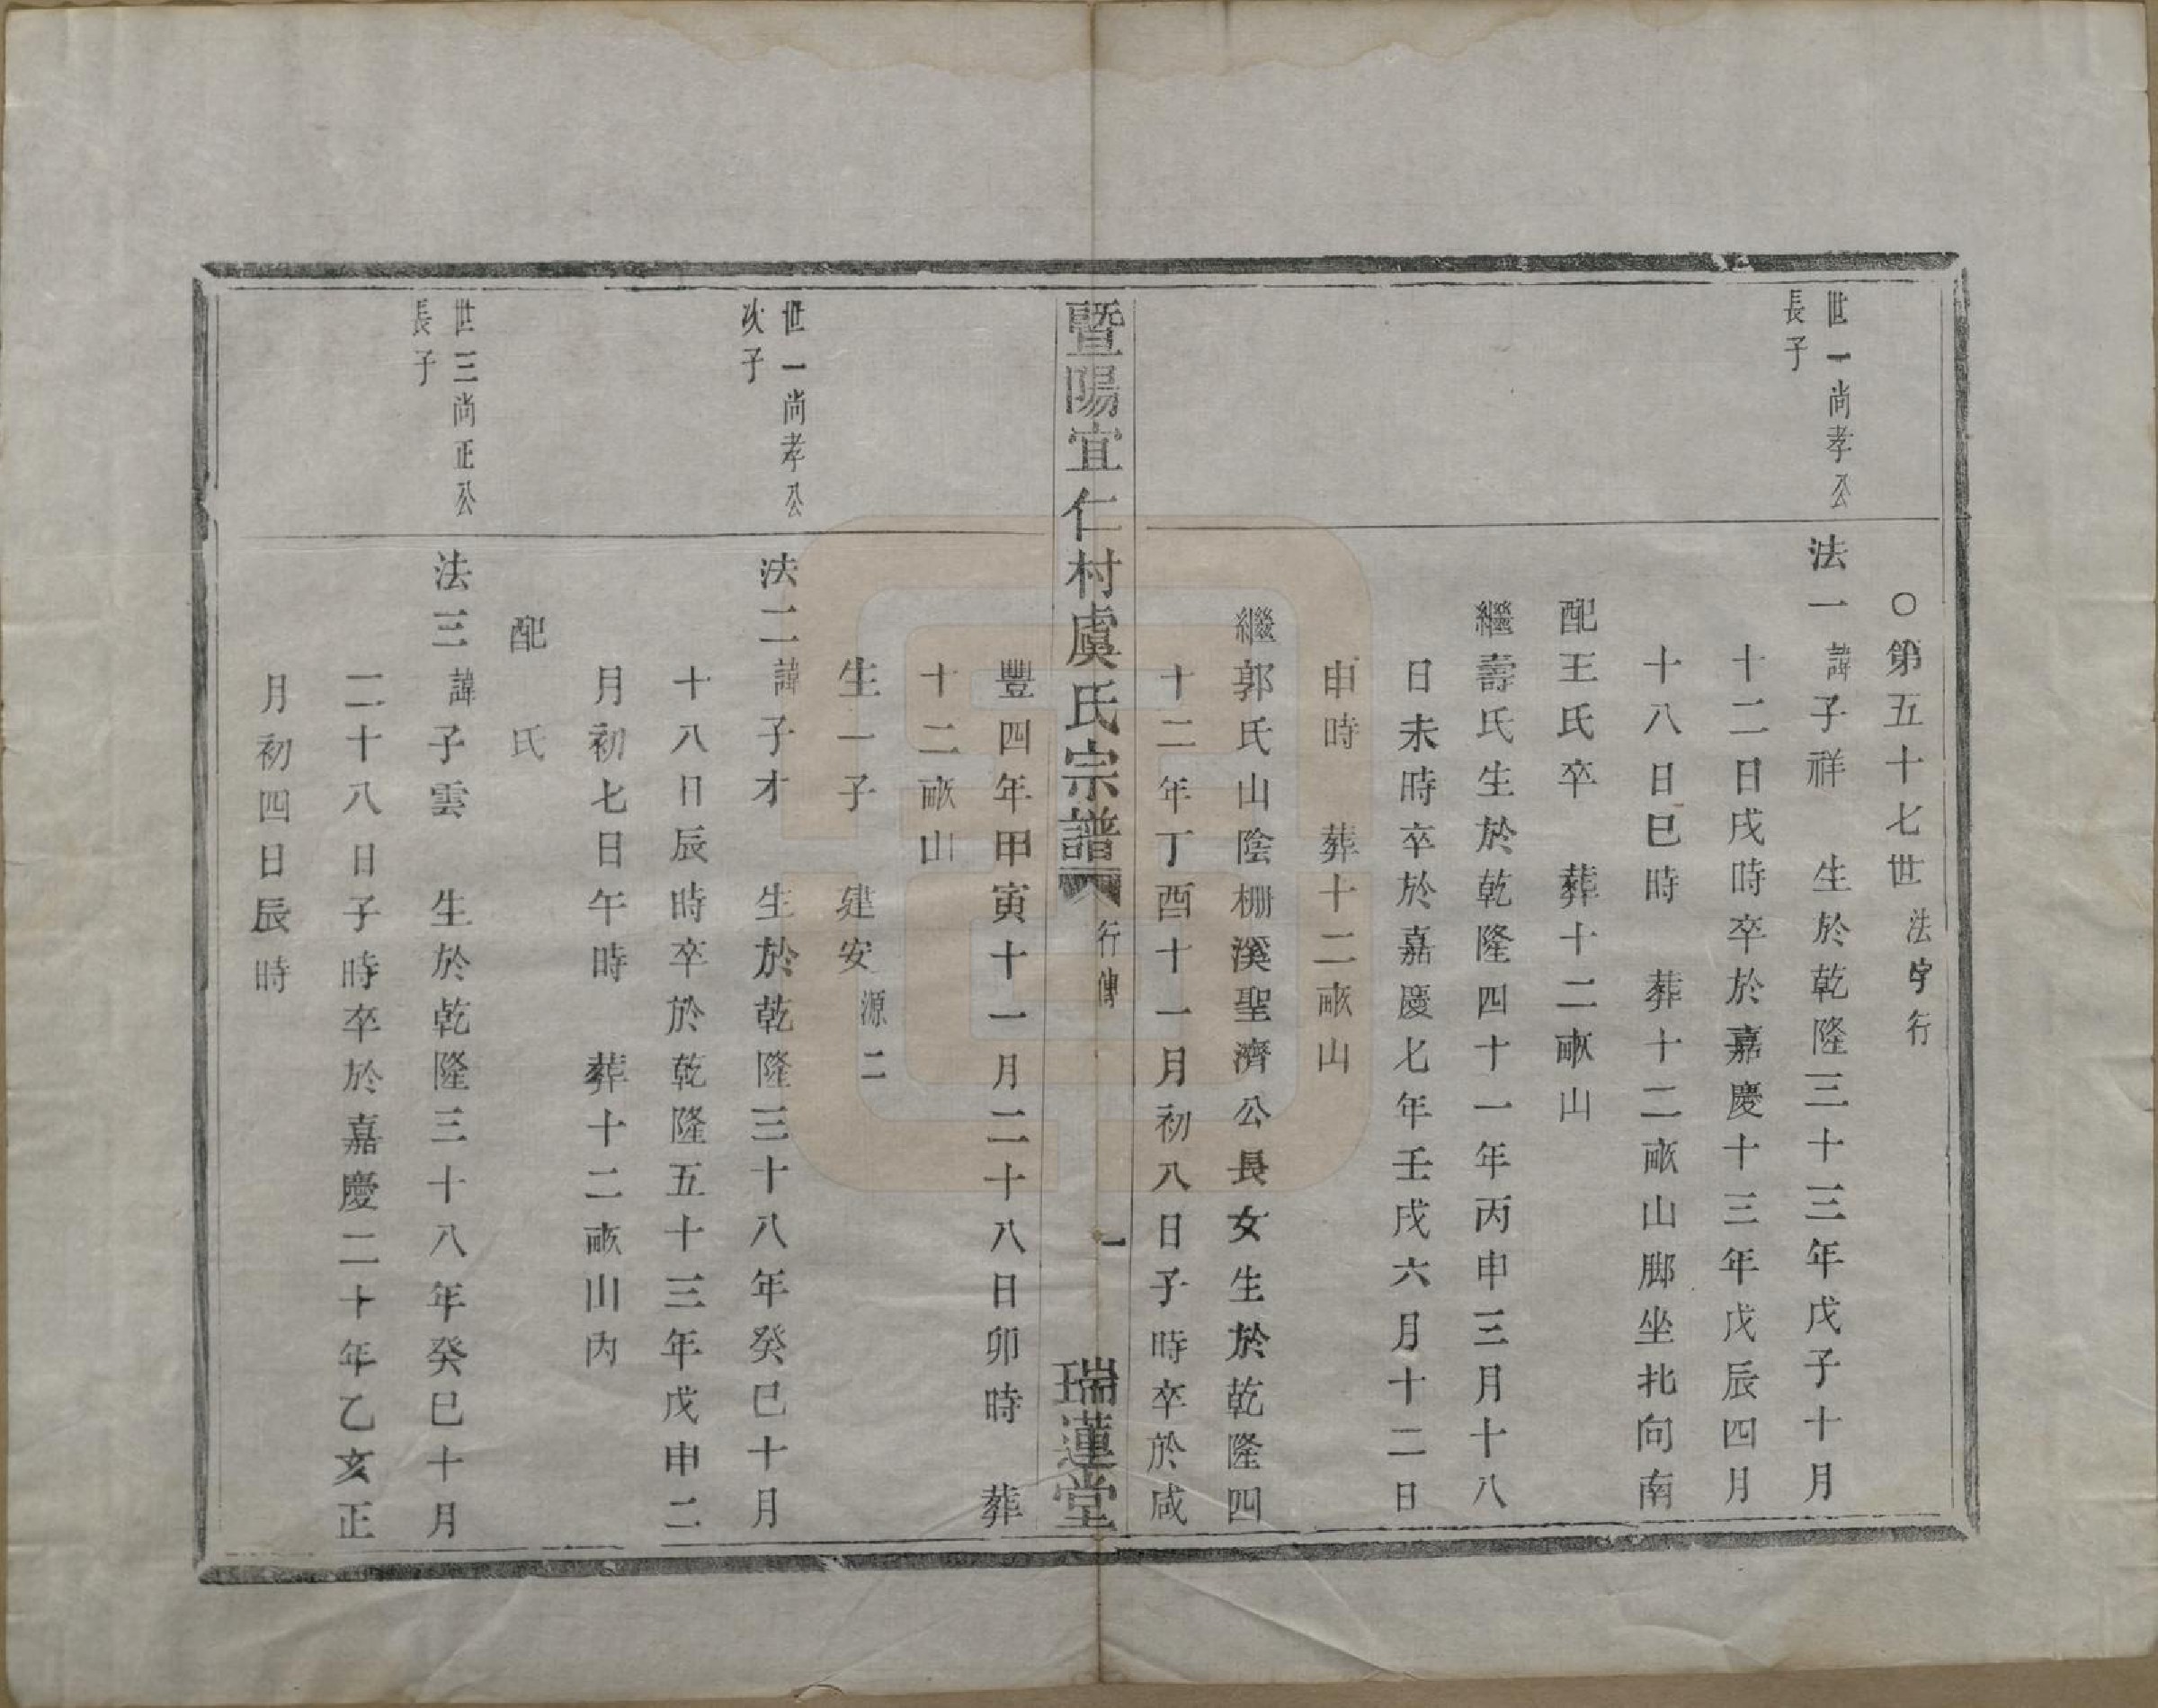 ○第五十七世法字行
世一尚孝公
長子
法一諱子祥　生於乾隆三十三年戊子十月
十二日戌時卒於嘉慶十三年戊辰四月
十八日巳時　葬十二畝山脚坐北向南
配王氏卒　葬十二畝山
繼壽氏生於乾隆四十一年丙申三月十八
日未時卒於嘉慶七年壬戌六月十二日
申時　葬十二畝山
繼郭氏山陰柵溪聖濟公長女生於乾隆四
十二年丁酉十一月初八日子時卒於咸
暨陽宜仁村虞氏宗譜　行傳　一　瑞蓮堂
豐四年甲寅十一月二十八日卯時　葬
十二畝山
生一子　建安源二
世一尚孝公
次子
法二諱子才　生於乾隆三十八年癸巳十月
十八日辰時卒於乾隆五十三年戊申二
月初七日午時　葬十二畝山內
配　氏
世三尚正公
長子
法三諱子雲　生於乾隆三十八年癸巳十月
二十八日子時卒於嘉慶二十年乙亥正
月初四日辰時